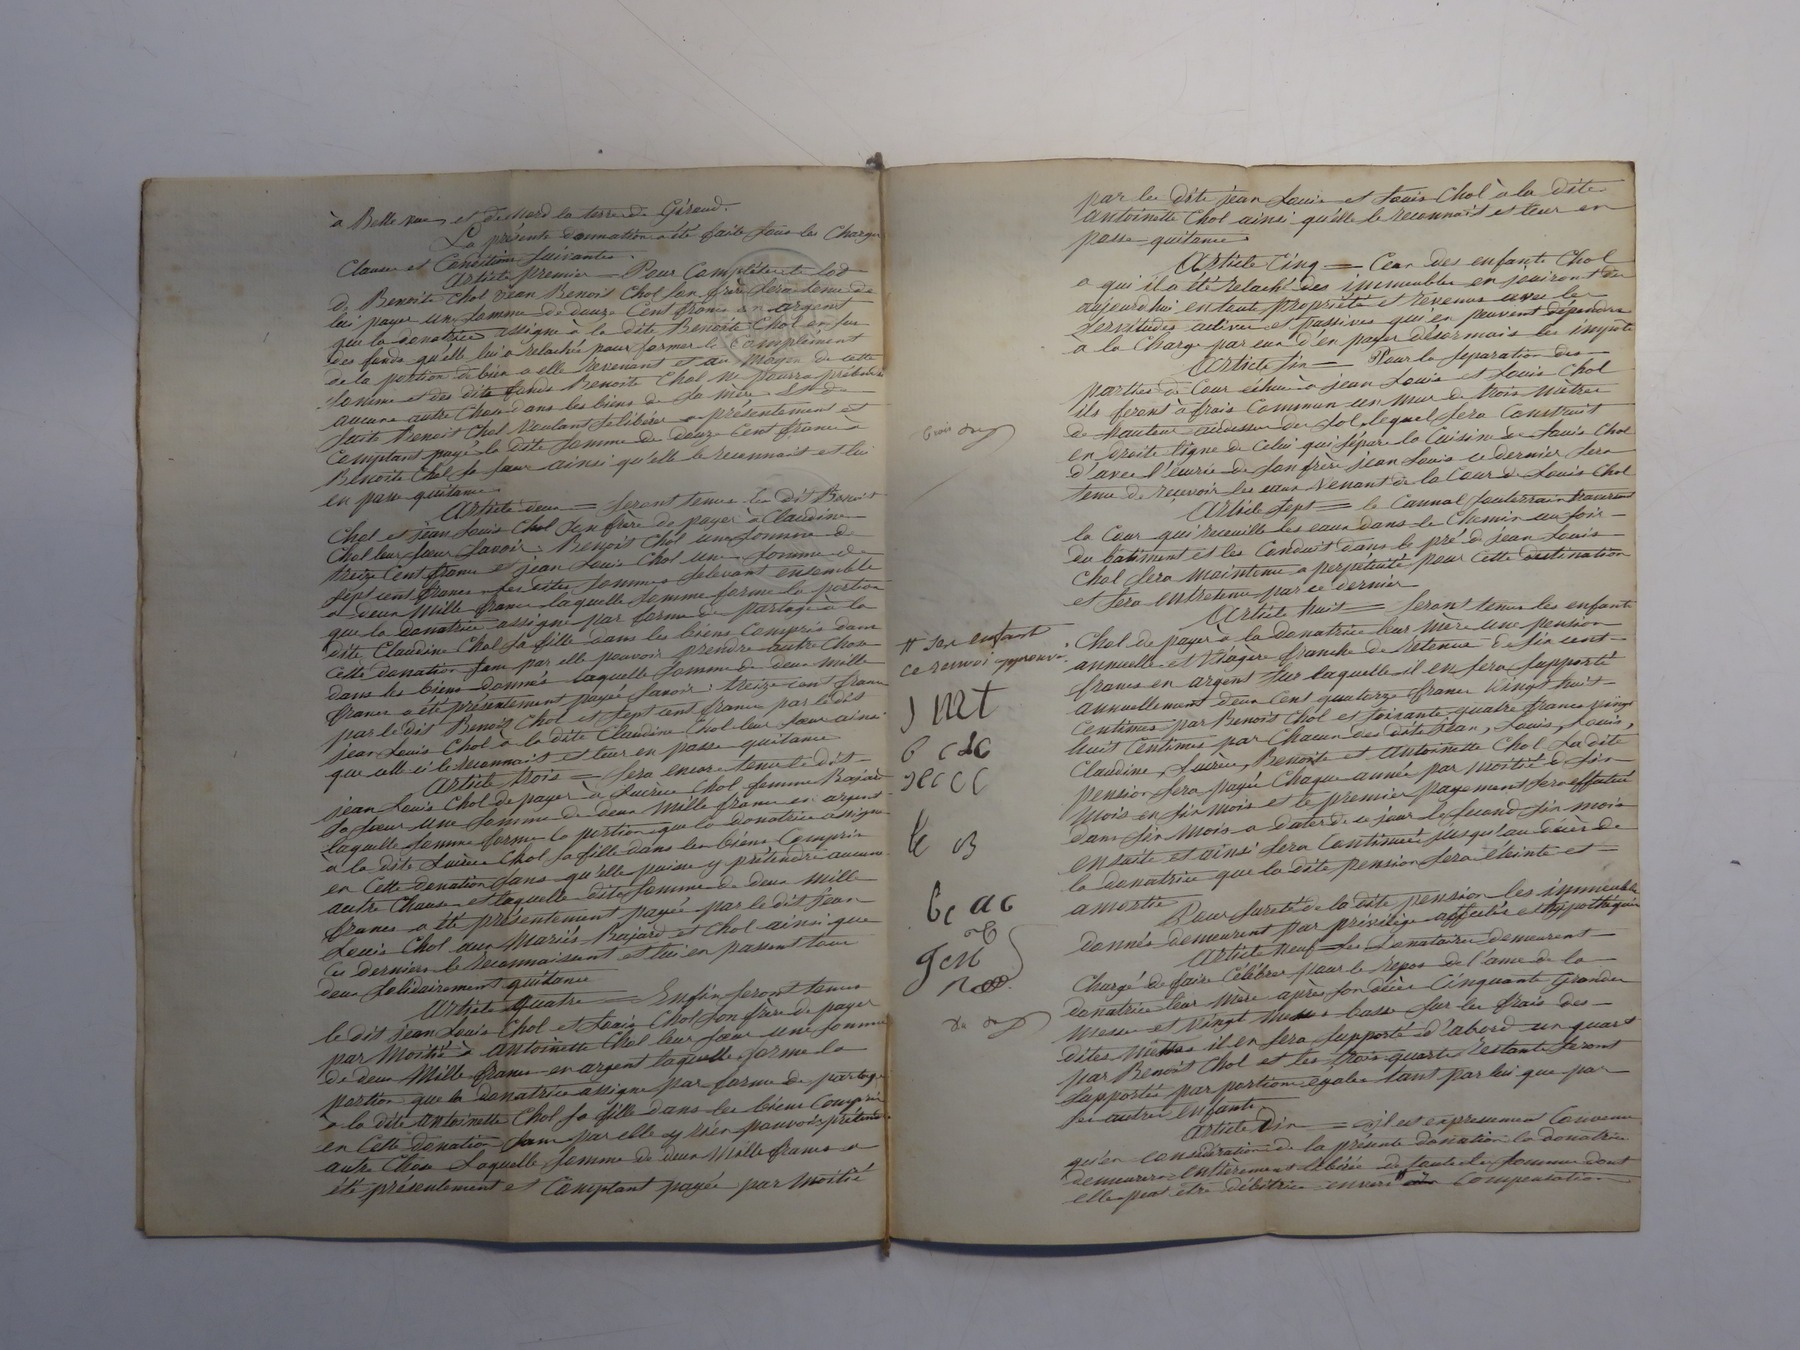 à Belle vue, et de Nord la terre de Géraud.
La présente donnation a été faite sous les Charges
Clauses et Conditions suivantes.
Article premier = Pour Compléter le lod
de Benoite Chol Jean Benoit Chol son frère sera tenu de
lui payer une somme de douze Cent francs en argent
que la donatrice assigne à la dite Benoite Chol en sus
des fonds qu'elle lui a relachés pour former le Complément
de la portion de bien a elle revenant et au moyen de cette
somme et des dits fonds Benoite Chol ne pourra prétendre
aucune autre Chose dans les biens de sa mère. Et de
suite Benoit Chol voulant se libérer a présentement et
Comptant payé la dite somme de douze Cent francs a
Benoite Chol sa sœur ainsi qu'elle le reconnait et lui
en passe quitance
Article deux = Seront tenus les dit Benoit
Chol et Jean Louis Chol son frère de payer à Claudine
Chol leur sœur savoir : Benoit Chol une somme de
treize Cent francs et jean Louis Chol une somme de
sept cent francs les dites sommes s'elevant ensemble
a deux mille francs laquelle somme forme la portion
que la donatrice assigne par forme de partage à la
dite Claudine Chol sa fille dans les biens Compris dans
cette donation sans par elle pouvoir prendre autre Chose
dans les biens donnés laquelle somme de deux mille
francs a été présentement payé savoir : treize cent francs
par le dit Benoit Chol et sept cent francs par le dit
jean Louis Chol à la dite Claudine Chol leur sœur ainsi
que celle ci le reconnait et leur en passe quitance
Article trois = Sera encore tenu le dit
jean Louis Chol de payer à Lucrèce Chol femme Bajard
sa sœur une somme de deux mille francs en argent
laquelle somme forme la portion que la donatrice assigne
à la dite Lucrèce Chol sa fille dans les biens Compris
en Cette donation sans qu'elle puisse y prétendre aucune
autre Chose et laquelle dite somme de deux mille
francs a été présentement payée par le dit Jean
Louis Chol aux Mariés Bajard et Chol ainsi que
Ces derniers le reconnaissent et lui en passent tous
deux solidairement quitance
Article quatre = Enfin seront tenus
le dit jean Louis Chol et Louis Chol son frère de payer
par Moitié à Antoinette Chol leur sœur une somme
de deux Mille francs en argent laquelle forme la
portion que la donatrice assigne par forme de partage
a la dite Antoinette Chol sa fille dans les biens Compris
en Cette donation sans par elle y rien pouvoir prétendre
autre Chose Laquelle somme de deux Mille francs a
été présentement et Comptant payée par Moitié
par les dits jean Louis et Louis Chol à la dite
Antoinette Chol ainsi qu'elle le reconnait et leur en
passe quitance
Article Cinq = Ceux des enfants Chol
a qui il a été relaché des immeubles en jouiront dès
aujourdhui en toute propriété et revenus avec les
servitudes actives et passives qui en peuvent dépendre
à la Charge par eux d'en payer désormais les impots
Article six = Pour la séparation des
parties de Cour échues à jean Louis et Louis Chol
ils feront à frais Commun un mur de trois mètres
de hauteur audessus du sol, lequel sera Construit
en droite ligne de Celui qui sépare la Cuisine de Louis Chol
d'avec l'écurie de son frère jean Louis ce dernier sera
tenu de recevoir les eaux venant de la Cour de Louis Chol
Article sept = le Cannal souterrain traversant
la Cour qui receuille les eaux dans le Chemin au soir
du batiment et les Conduit dans le pré de jean Louis
Chol sera maintenu a perpétuité pour cette destination
et sera entretenu par ce dernier
Article huit = Seront tenus les enfants
Chol de payer à la donatrice leur mère une pension
annuelle et viagère franche de retenue de six cent
francs en argent sur laquelle il en sera supporté
annuellement deux Cent quatorze francs vingt huit
centimes par Benoit Chol et soixante quatre francs vingt
huit Centimes par Chacun des dits Jean, Louis, Louis,
Claudine, Lucrèce, Benoite et Antoinette Chol. La dite
pension sera payée Chaque année par moitié de six
mois en six mois et le premier payement sera effectué
dans six mois a dater de ce jour le second six mois
ensuite et ainsi sera Continué jusqu'au décès de
la donatrice que la dite pension sera éteinte et
amortie
Pour sureté de la dite pension les immeubles
donnés demeurent par privilège affectés et hypothéqués
Article neuf = Les Donataires demeurent
Chargé de faire Célébrer pour le repos de l'ame de la
donatrice leur Mère après son décès Cinquante Grandes
Messes et vingt Messes basses sur les frais des
dites Messes il en sera supporté d'abord un quart
par Benoit Chol et les trois quarts restants seront
supportés par portion égales tant par lui que par
ses autres enfants
Article Dix = il est expressement Convenu
qu'en considération de la présente donation la donatrice
demeurera entièrement libérée de toutes les sommes dont
elle peut etre débitrice envers Compensation
# ses enfant
ce renvoi approuvé.
J M t
B C
L C C C
B
B c a c
J C